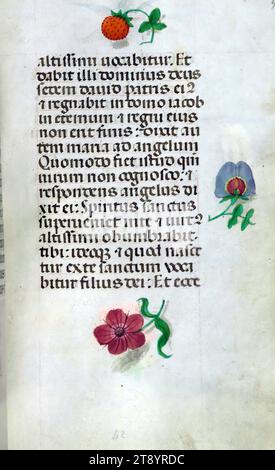 altissimi uocabitur. Et
dabit illi dominus deus
sedem dauid patris ei2
& regnabit in domo iacob
in eternum & regni eius
non erit finis: dixit au
tem maria ad angelum
Quomodo fiet istud qui
uirum non cognosco: &
respondens angelus di
xit ei: Spiritus sanctus
superueniet in te & uirt2
altissimi obumbrabit
tibi: ideoq; & quod nasce
tur ex te sanctum uoca
bitur filius dei: Et ecce
42
alamy
Image ID: 2T8YRDC
www.alamy.com